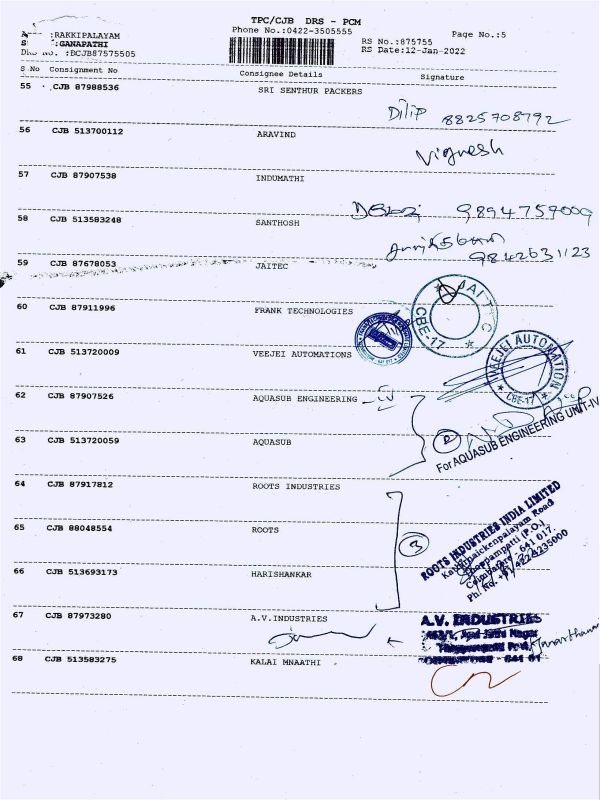 TPC/CJB DRS - PCM
Phone No.:0422-3505555
Page No.:5
:RAKKIPALAYAM
:GANAPATHI
DRS No. :BCJB87575505
RS No.:875755
RS Date:12-Jan-2022
S No Consignment No Consignee Details Signature
55 CJB 87988536 SRI SENTHUR PACKERS
Dilip 8825708792
56 CJB 513700112 ARAVIND
Vignesh
57 CJB 87907538 INDUMATHI
9894759009
58 CJB 513583248 SANTHOSH
9842631123
59 CJB 87678053 JAITEC
60 CJB 87911996 FRANK TECHNOLOGIES
CBE-17
61 CJB 513720009 VEEJEI AUTOMATIONS
VEEJEI AUTOMATION
CBE-17
62 CJB 87907526 AQUASUB ENGINEERING
63 CJB 513720059 AQUASUB
2
For AQUASUB ENGINEERING UNIT-IV
64 CJB 87917812 ROOTS INDUSTRIES
65 CJB 88048554 ROOTS
3
ROOTS INDUSTRIES INDIA LIMITED
Road
Thoppampatti (P.O.)
Coimbatore - 641 017.
66 CJB 513693173 HARISHANKAR
67 CJB 87973280 A.V.INDUSTRIES
A.V. INDUSTRIES
68 CJB 513583275 KALAI MNAATHI